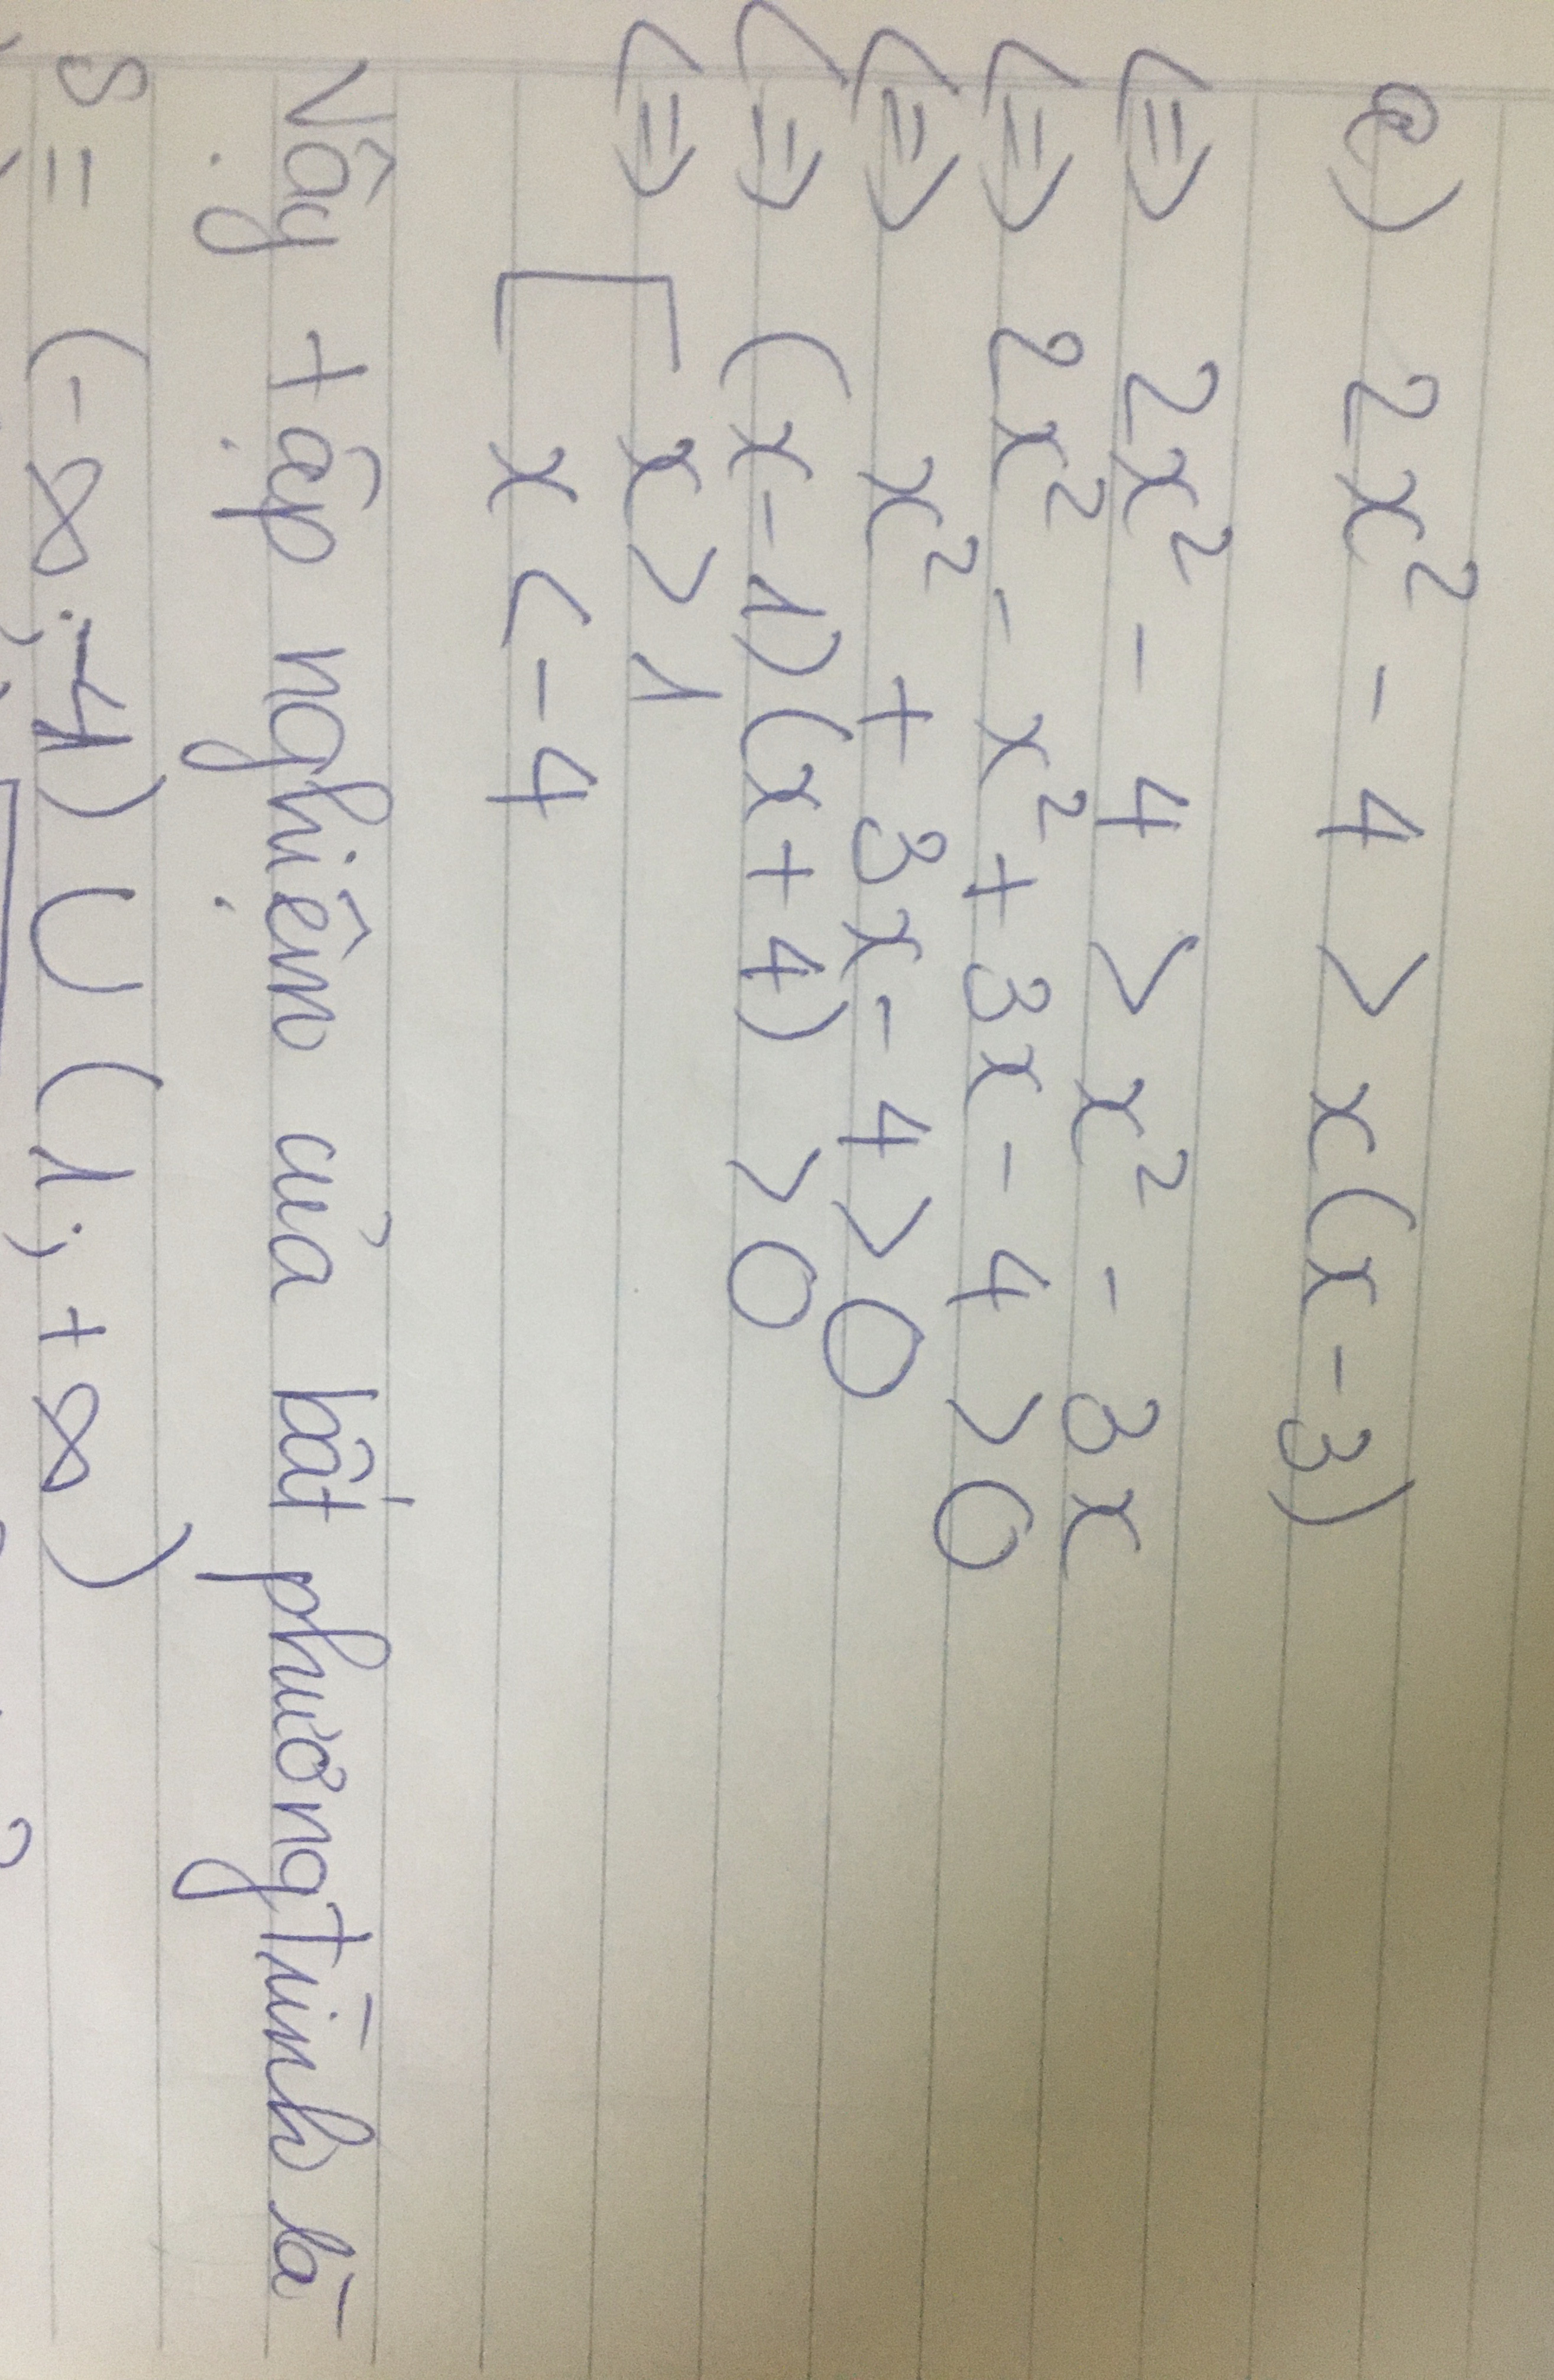 e) 2x² - 4 > x(x - 3)
<=> 2x² - 4 > x² - 3x
<=> 2x² - x² + 3x - 4 > 0
<=> x² + 3x - 4 > 0
<=> (x - 1)(x + 4) > 0
<=> [ x > 1
x < -4
Vậy tập nghiệm của bất phương trình là
S = (-∞; -4) ∪ (1; +∞)